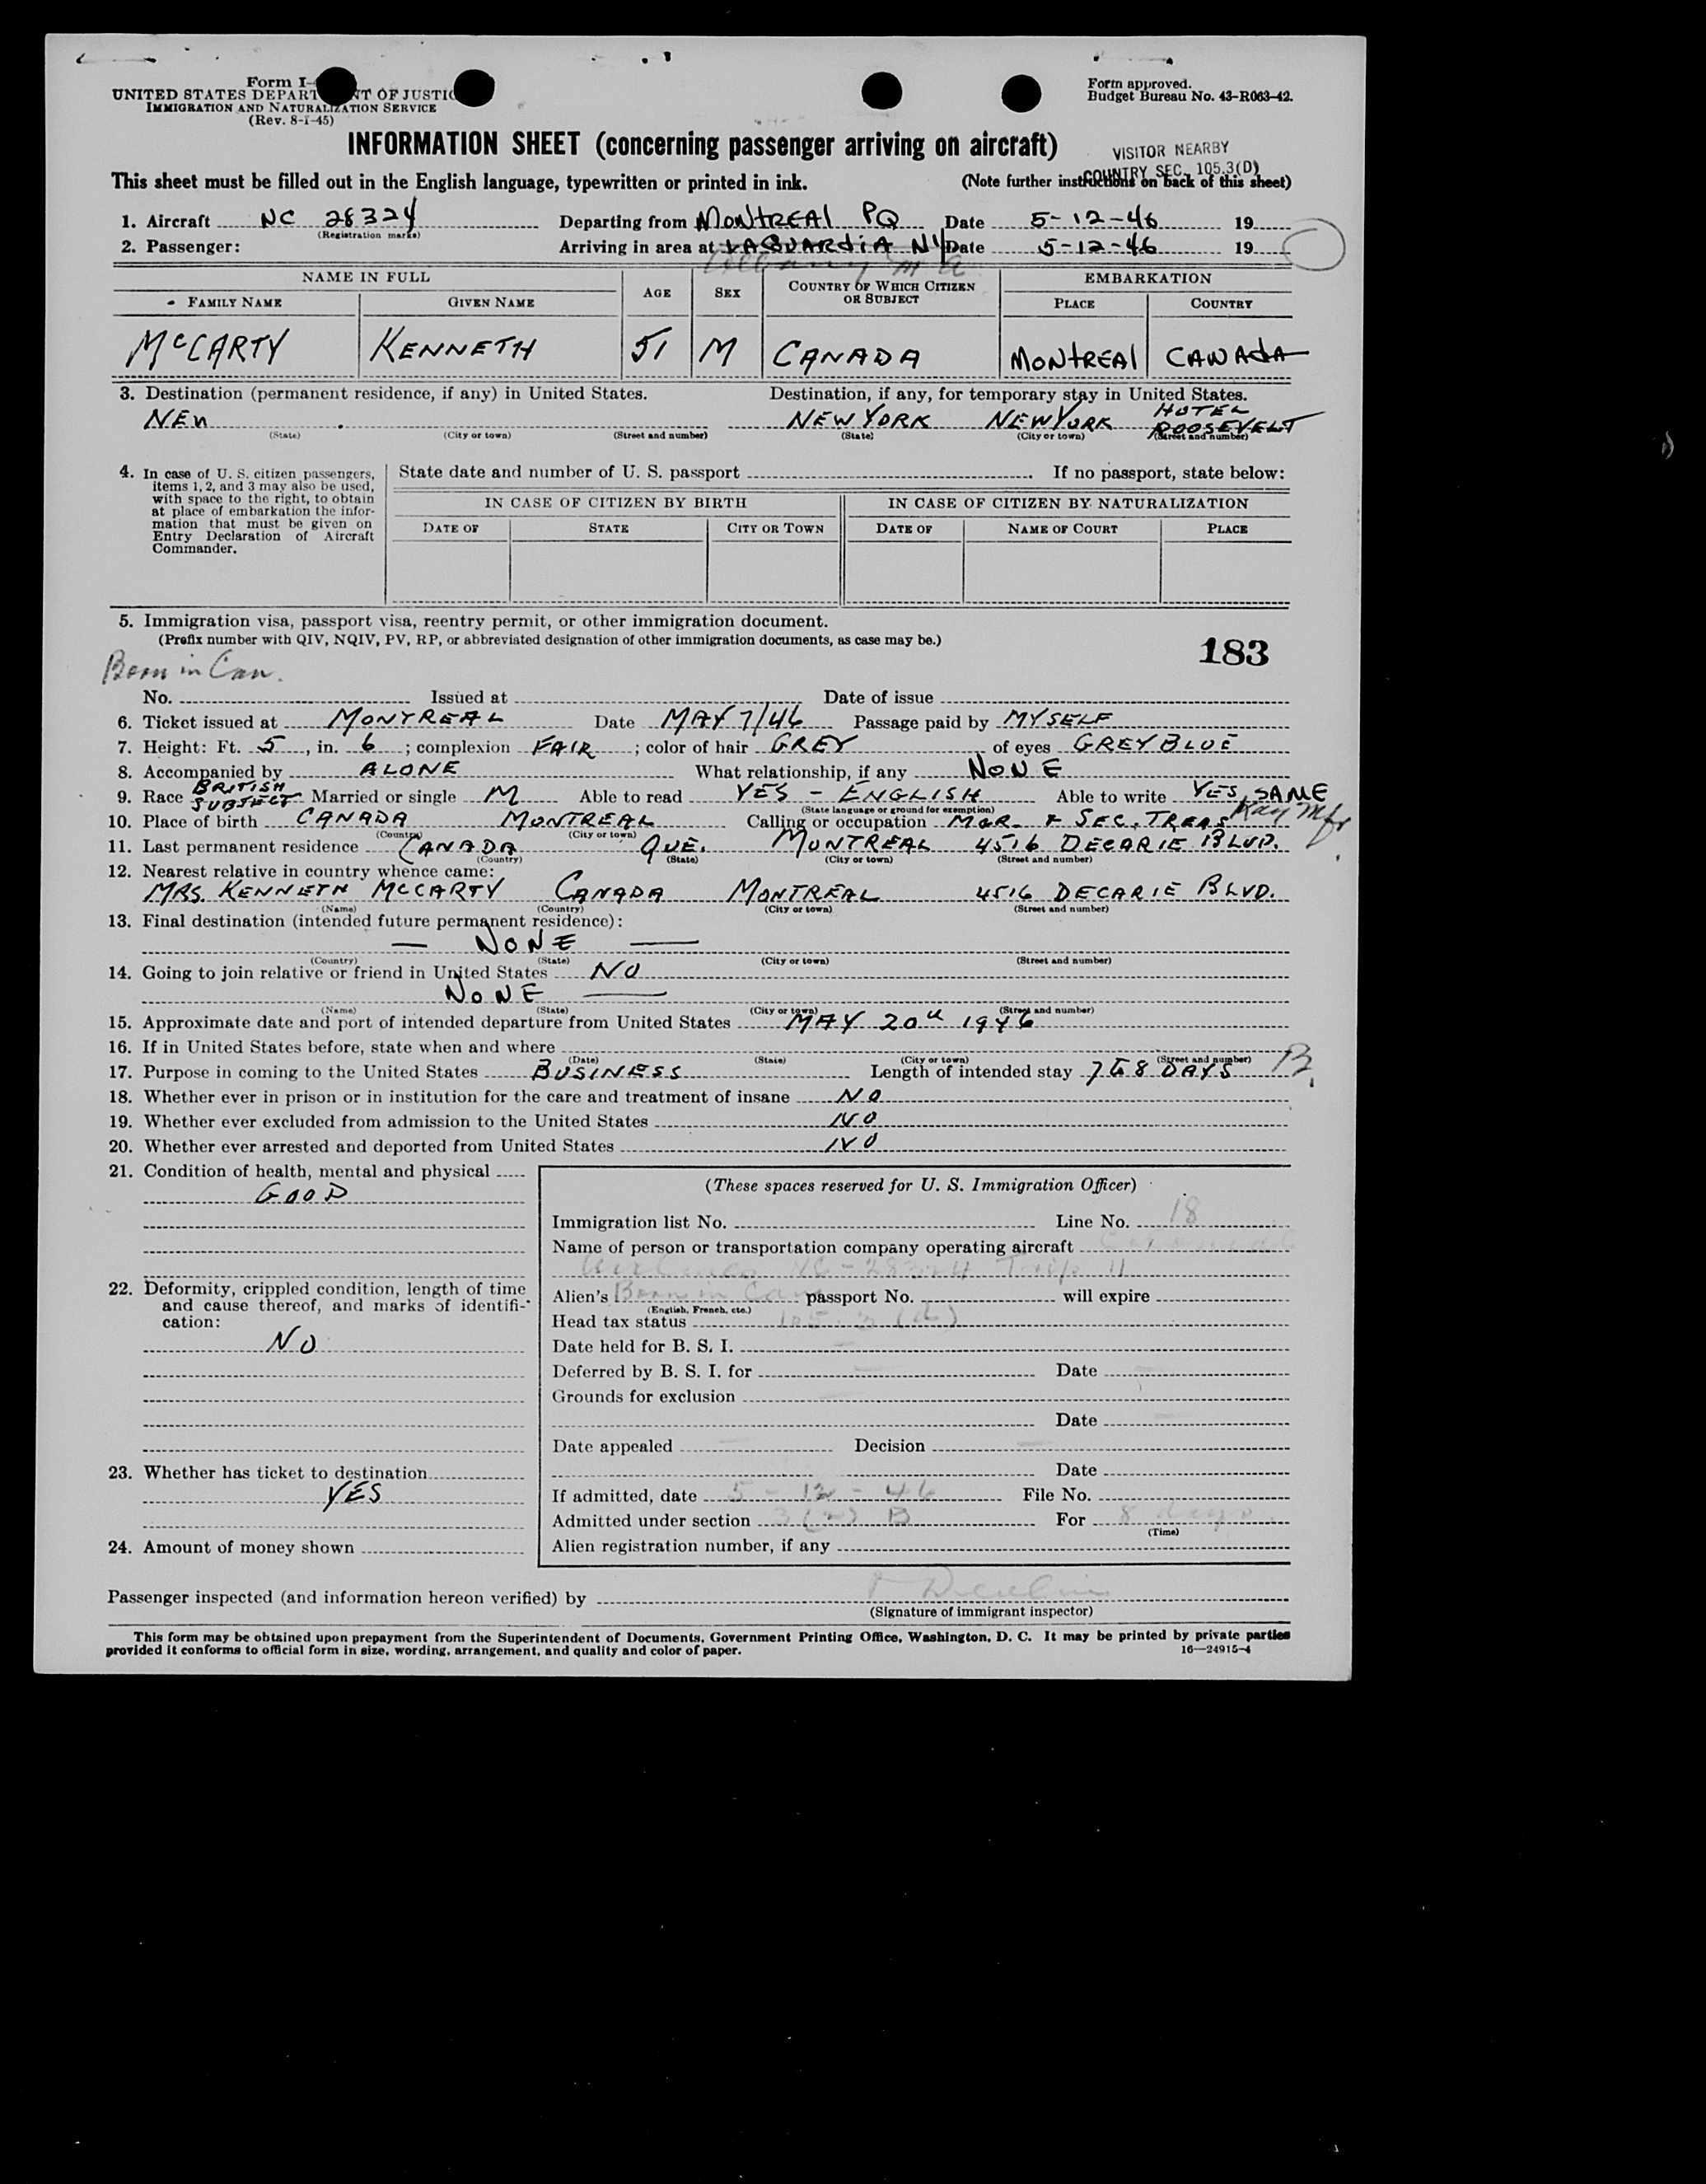 Form I-
UNITED STATES DEPART NT OF JUSTIC
IMMIGRATION AND NATURALIZATION SERVICE
(Rev. 8-1-45)
Form approved.
Budget Bureau No. 43-R063-42.
INFORMATION SHEET (concerning passenger arriving on aircraft)
VISITOR NEARBY
COUNTRY SEC. 105.3(D)
This sheet must be filled out in the English language, typewritten or printed in ink. (Note further instructions on back of this sheet)
1. Aircraft NC 28324 Departing from MONTREAL PQ Date 5-12-46 19
(Registration marks)
2. Passenger: Arriving in area at LAGUARDIA NY Date 5-12-46 19
Albany
NAME IN FULL AGE SEX COUNTRY OF WHICH CITIZEN OR SUBJECT EMBARKATION
FAMILY NAME GIVEN NAME PLACE COUNTRY
McCARTY KENNETH 51 M CANADA MONTREAL CANADA
3. Destination (permanent residence, if any) in United States. Destination, if any, for temporary stay in United States.
NEW NEW YORK NEW YORK HOTEL ROOSEVELT
(State) (City or town) (Street and number) (State) (City or town) (Street and number)
4. In case of U. S. citizen passengers, items 1, 2, and 3 may also be used, with space to the right, to obtain at place of embarkation the information that must be given on Entry Declaration of Aircraft Commander.
State date and number of U. S. passport If no passport, state below:
IN CASE OF CITIZEN BY BIRTH IN CASE OF CITIZEN BY NATURALIZATION
DATE OF STATE CITY OR TOWN DATE OF NAME OF COURT PLACE
5. Immigration visa, passport visa, reentry permit, or other immigration document.
(Prefix number with QIV, NQIV, PV, RP, or abbreviated designation of other immigration documents, as case may be.)
183
Born in Can.
No. Issued at Date of issue
6. Ticket issued at MONTREAL Date MAY 7/46 Passage paid by MYSELF
7. Height: Ft. 5, in. 6; complexion FAIR; color of hair GREY of eyes GREY BLUE
8. Accompanied by ALONE What relationship, if any NONE
9. Race BRITISH SUBJECT Married or single M Able to read YES - ENGLISH Able to write YES, SAME
(State language or ground for exemption)
10. Place of birth CANADA MONTREAL Calling or occupation MGR. & SEC. TREAS Kay Mfr.
(Country) (City or town)
11. Last permanent residence CANADA QUE. MONTREAL 4516 DECARIE BLVD.
(Country) (State) (City or town) (Street and number)
12. Nearest relative in country whence came:
MRS. KENNETH MCCARTY CANADA MONTREAL 4516 DECARIE BLVD.
(Name) (Country) (City or town) (Street and number)
13. Final destination (intended future permanent residence):
— NONE —
(Country) (State) (City or town) (Street and number)
14. Going to join relative or friend in United States NO
NONE —
(Name) (State) (City or town) (Street and number)
15. Approximate date and port of intended departure from United States MAY 20th 1946
16. If in United States before, state when and where
(Date) (State) (City or town) (Street and number)
17. Purpose in coming to the United States BUSINESS Length of intended stay 7 to 8 DAYS B.
18. Whether ever in prison or in institution for the care and treatment of insane NO
19. Whether ever excluded from admission to the United States NO
20. Whether ever arrested and deported from United States NO
21. Condition of health, mental and physical
GOOD
22. Deformity, crippled condition, length of time and cause thereof, and marks of identification:
NO
23. Whether has ticket to destination
YES
24. Amount of money shown
(These spaces reserved for U. S. Immigration Officer)
Immigration list No. Line No. 18
Name of person or transportation company operating aircraft Colonial
Airlines NC-28324 Trip 11
Alien's Born in Can passport No. will expire
(English, French, etc.)
Head tax status 105.3(d)
Date held for B. S. I.
Deferred by B. S. I. for Date
Grounds for exclusion
Date
Date appealed Decision
Date
If admitted, date 5-12-46 File No.
Admitted under section 3(2) B For 8 days
(Time)
Alien registration number, if any
Passenger inspected (and information hereon verified) by
(Signature of immigrant inspector)
This form may be obtained upon prepayment from the Superintendent of Documents, Government Printing Office, Washington, D. C. It may be printed by private parties
provided it conforms to official form in size, wording, arrangement, and quality and color of paper. 16—24915-4